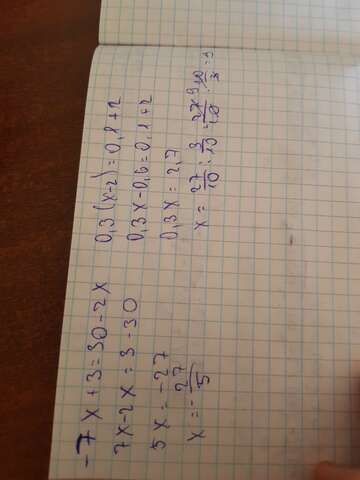 -7x+3=30-2x
7x-2x=3-30
5x=-27
x=-27/5
0,3(x-2)=0,1+2
0,3x-0,6=0,1+2
0,3x=2,7
x=27/10:3/10=